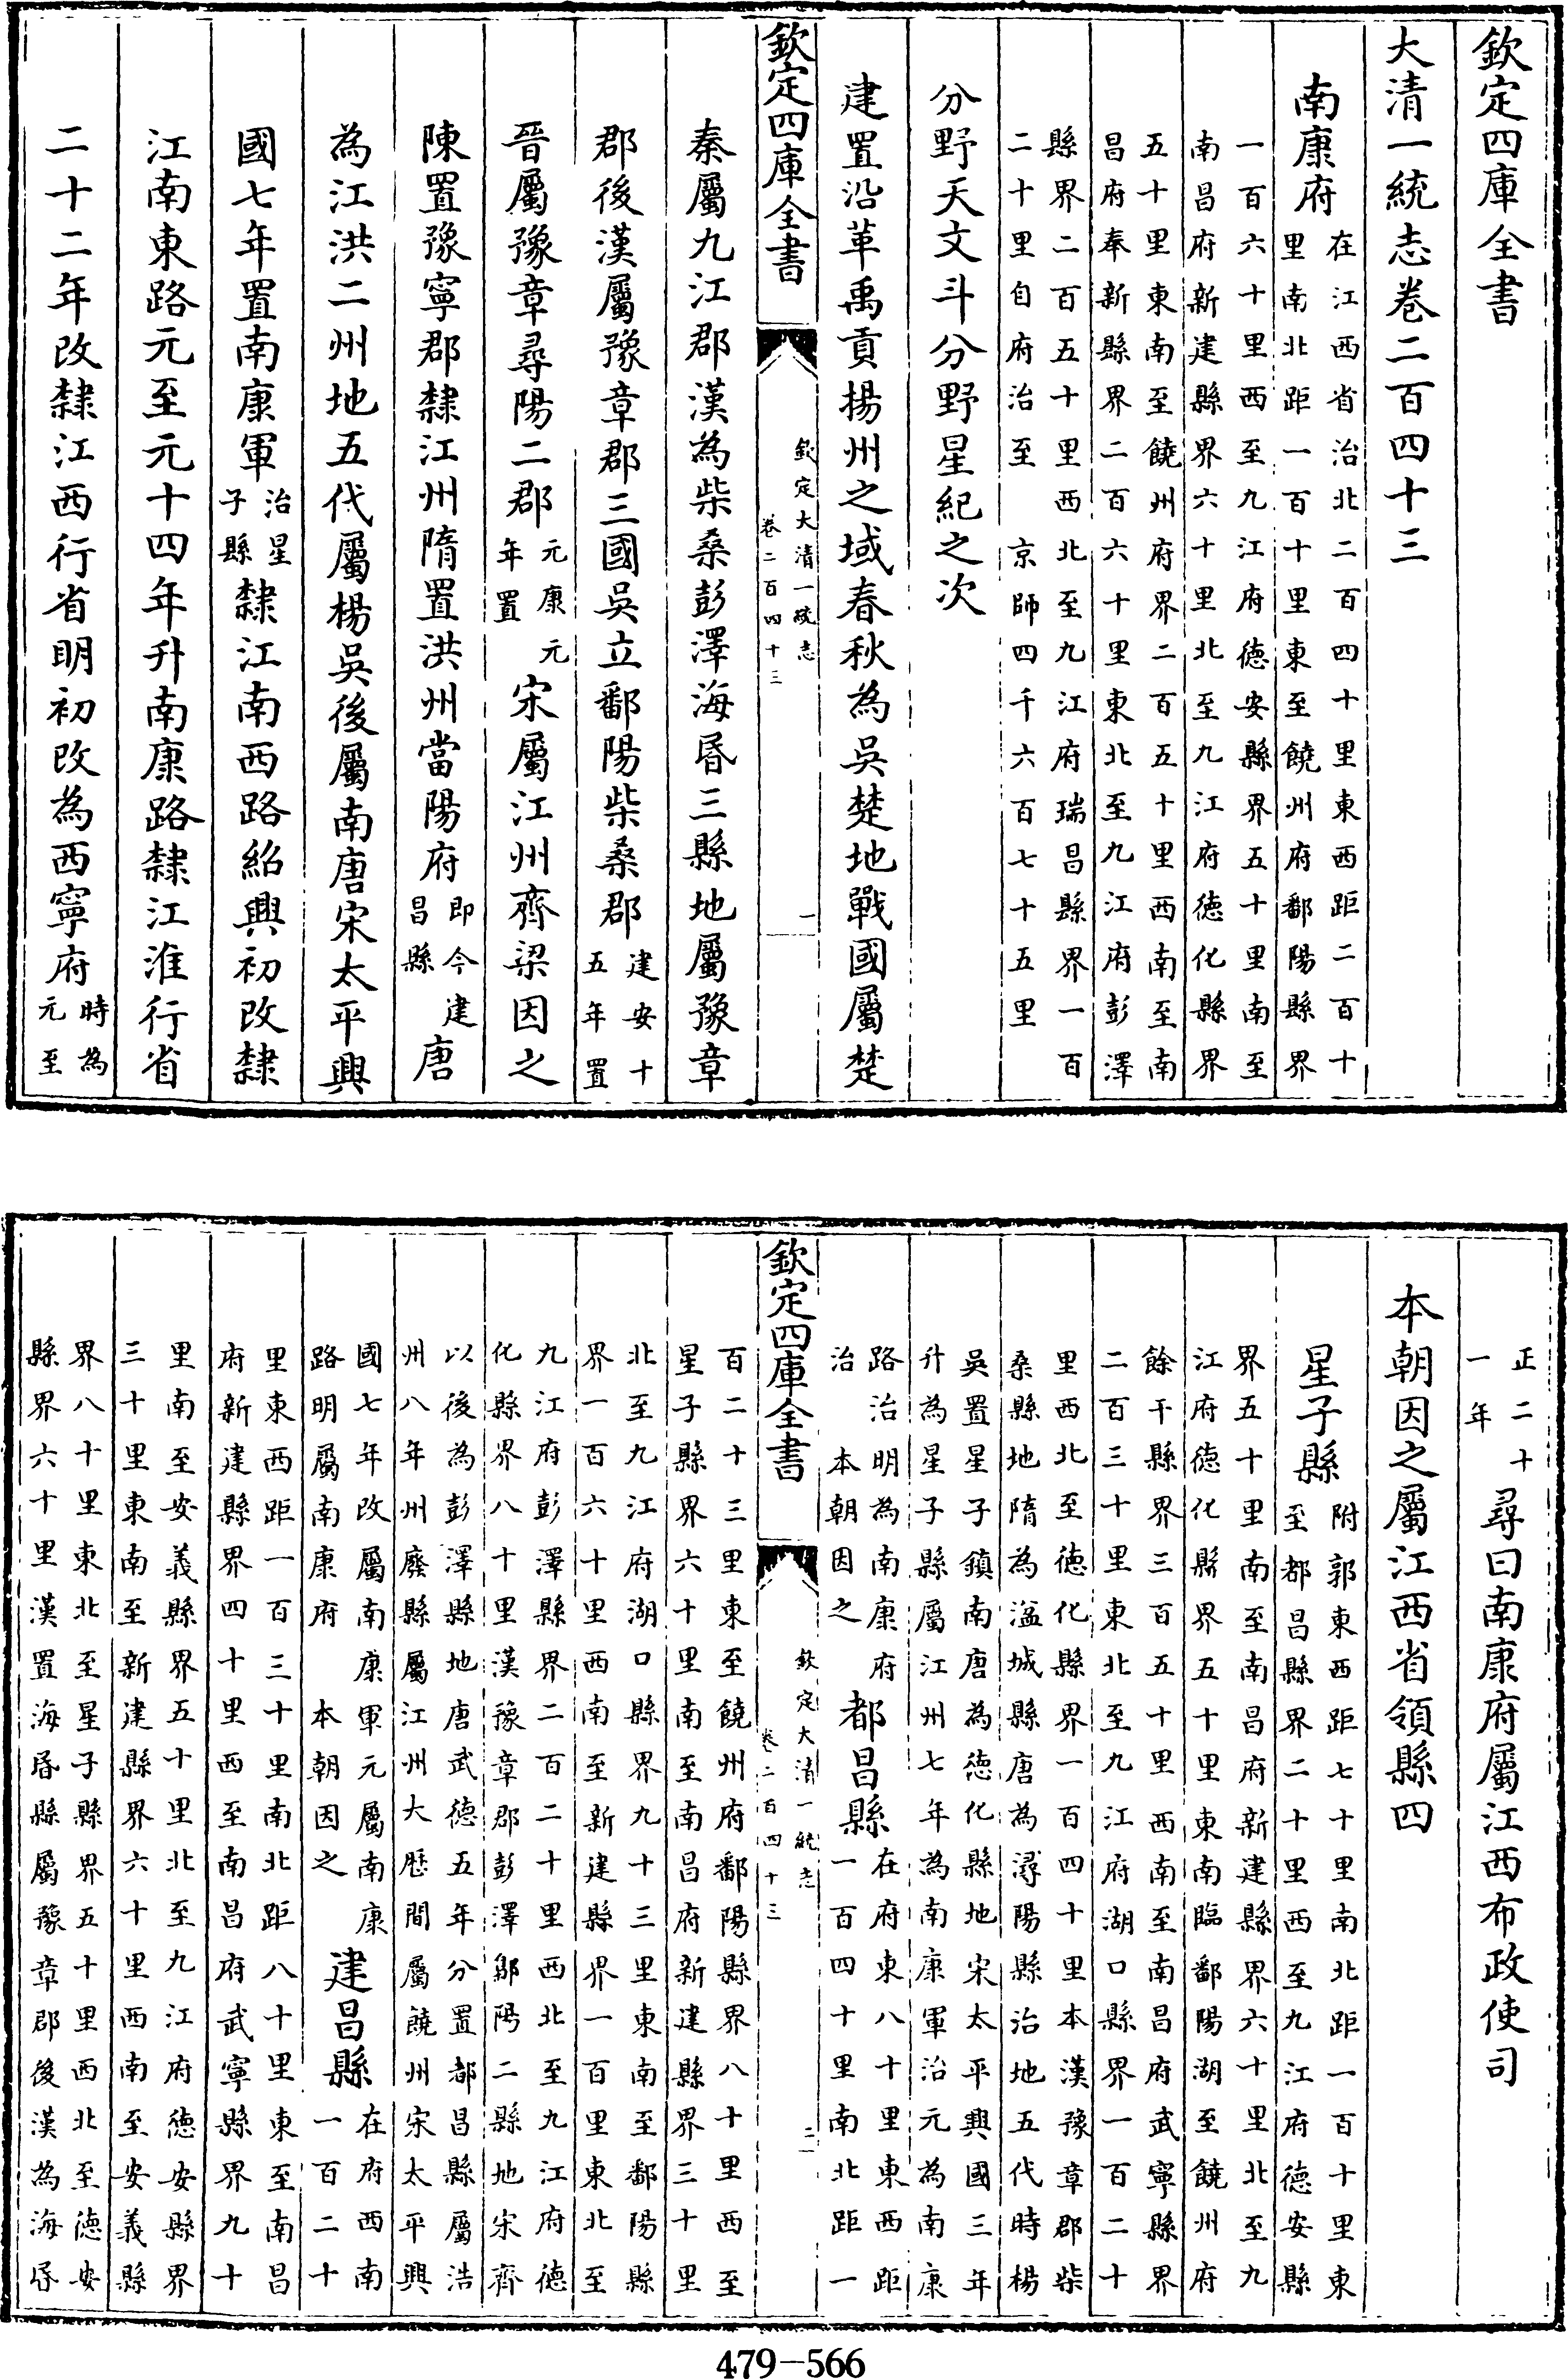 欽定四庫全書
大清一統志卷二百四十三
南康府
在江西省治北二百四十里東西距二百十
里南北距一百十里東至饒州府鄱陽縣界
一百六十里西至九江府德安縣界五十里南至
南昌府新建縣界六十里北至九江府德化縣界
五十里東南至饒州府界二百五十里西南至南
昌府奉新縣界二百六十里東北至九江府彭澤
縣界二百五十里西北至九江府瑞昌縣界一百
二十里自府治至 京師四千六百七十五里
分野天文斗分野星紀之次
建置沿革禹貢揚州之域春秋為吳楚地戰國屬楚
欽定四庫全書
欽定大清一統志
卷二百四十三
一
秦屬九江郡漢為柴桑彭澤海昏三縣地屬豫章
郡後漢屬豫章郡三國吳立鄱陽柴桑郡
建安十
五年置
晉屬豫章尋陽二郡
元康元
年置
宋屬江州齊梁因之
陳置豫寧郡隸江州隋置洪州當陽府
即今建
昌縣
唐
為江洪二州地五代屬楊吳後屬南唐宋太平興
國七年置南康軍
治星
子縣
隸江南西路紹興初改隸
江南東路元至元十四年升南康路隸江淮行省
二十二年改隸江西行省明初改為西寧府
時為
元至
正二十
一年
尋曰南康府屬江西布政使司
本朝因之屬江西省領縣四
星子縣
附郭東西距七十里南北距一百十里東
至都昌縣界二十里西至九江府德安縣
界五十里南至南昌府新建縣界六十里北至九
江府德化縣界五十里東南臨鄱陽湖至饒州府
餘干縣界三百五十里西南至南昌府武寧縣界
二百三十里東北至九江府湖口縣界一百二十
里西北至德化縣界一百四十里本漢豫章郡柴
桑縣地隋為湓城縣唐為潯陽縣治地五代時楊
吳置星子鎮南唐為德化縣地宋太平興國三年
升為星子縣屬江州七年為南康軍治元為南康
路治明為南康府
治 本朝因之
都昌縣
在府東八十里東西距
一百四十里南北距一
百二十三里東至饒州府鄱陽縣界八十里西至
星子縣界六十里南至南昌府新建縣界三十里
北至九江府湖口縣界九十三里東南至鄱陽縣
界一百六十里西南至新建縣界一百里東北至
九江府彭澤縣界二百二十里西北至九江府德
化縣界八十里漢豫章郡彭澤鄡陽二縣地宋齊
以後為彭澤縣地唐武德五年分置都昌縣屬浩
州八年州廢縣屬江州大歷間屬饒州宋太平興
國七年改屬南康軍元屬南康
路明屬南康府 本朝因之
建昌縣
在府西南
一百二十
里東西距一百三十里南北距八十里東至南昌
府新建縣界四十里西至南昌府武寧縣界九十
里南至安義縣界五十里北至九江府德安縣界
三十里東南至新建縣界六十里西南至安義縣
界八十里東北至星子縣界五十里西北至德安
縣界六十里漢置海昏縣屬豫章郡後漢為海昏
欽定四庫全書
欽定大清一統志
卷二百四十三
二
479-566